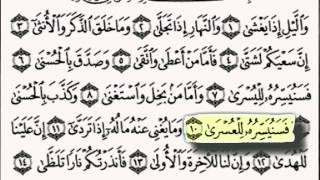 وَالَّيْلِ إِذَا يَغْشَىٰ ١ وَالنَّهَارِ إِذَا تَجَلَّىٰ ٢ وَمَا خَلَقَ الذَّكَرَ وَالْأُنثَىٰ ٣
إِنَّ سَعْيَكُمْ لَشَتَّىٰ ٤ فَأَمَّا مَنْ أَعْطَىٰ وَاتَّقَىٰ ٥ وَصَدَّقَ بِالْحُسْنَىٰ ٦
فَسَنُيَسِّرُهُ لِلْيُسْرَىٰ ٧ وَأَمَّا مَن بَخِلَ وَاسْتَغْنَىٰ ٨ وَكَذَّبَ بِالْحُسْنَىٰ ٩
فَسَنُيَسِّرُهُ لِلْعُسْرَىٰ ١٠ وَمَا يُغْنِي عَنْهُ مَالُهُ إِذَا تَرَدَّىٰ ١١ إِنَّ عَلَيْنَا
لَلْهُدَىٰ ١٢ وَإِنَّ لَنَا لَلْآخِرَةَ وَالْأُولَىٰ ١٣ فَأَنذَرْتُكُمْ نَارًا تَلَظَّىٰ ١٤